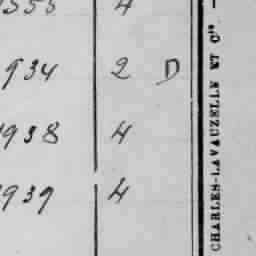 934 2 D
1938 4
1939 4
CHARLES-LAVAUZELLE ET Cie